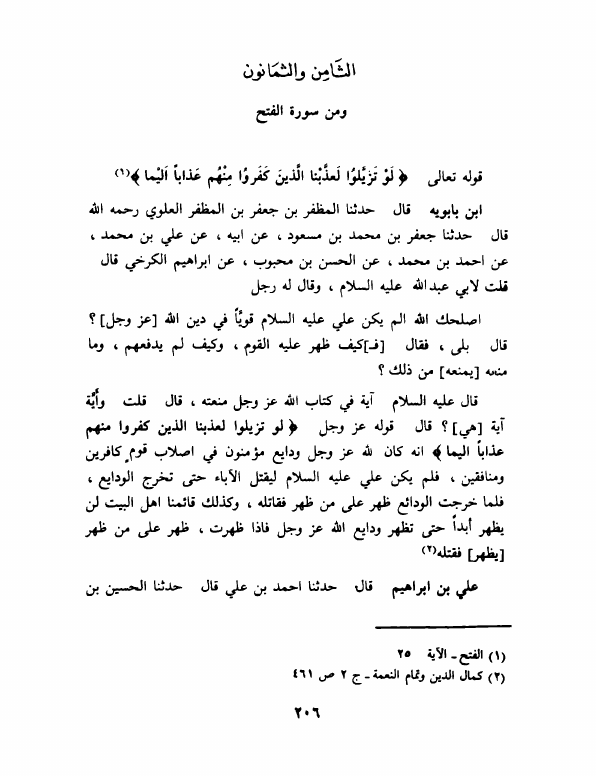 الثَّامِن والثمَانون
ومن سورة الفتح
قوله تعالى ﴿ لَوْ تَزَيَّلُوُا لَعذَّبْنا الَّذينَ كَفَروُا مِنْهُم عَذاباً اَليْما ﴾(١)
ابن بابويه قال حدثنا المظفر بن جعفر بن المظفر العلوي رحمه الله
قال حدثنا جعفر بن محمد بن مسعود ، عن ابيه ، عن علي بن محمد ،
عن احمد بن محمد ، عن الحسن بن محبوب ، عن ابراهيم الكرخي قال
قلت لابي عبدالله عليه السلام ، وقال له رجل
اصلحك الله الم يكن علي عليه السلام قويَّاً في دين الله [عز وجل] ؟
قال بلى ، فقال [فـ]كيف ظهر عليه القوم ، وكيف لم يدفعهم ، وما
منعه [يمنعه] من ذلك ؟
قال عليه السلام آية في كتاب الله عز وجل منعته ، قال قلت وأيَّة
آية [هي] ؟ قال قوله عز وجل ﴿ لو تزيلوا لعذبنا الذين كفروا منهم
عذاباً اليما ﴾ انه كان لله عز وجل ودايع مؤمنون في اصلاب قوم كافرين
ومنافقين ، فلم يكن علي عليه السلام ليقتل الآباء حتى تخرج الودايع ،
فلما خرجت الودائع ظهر على من ظهر فقاتله ، وكذلك قائمنا اهل البيت لن
يظهر أبداً حتى تظهر ودايع الله عز وجل فاذا ظهرت ، ظهر على من ظهر
[يظهر] فقتله(٢)
علي بن ابراهيم قال حدثنا احمد بن علي قال حدثنا الحسين بن
(١) الفتح ـ الآية ٢٥
(٢) كمال الدين وتمام النعمة ـ ج ٢ ص ٤٦١
٢٠٦